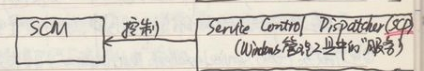 SCM
控制
Service Control Dispatcher(SCP)
(Windows管理工具中的"服务")